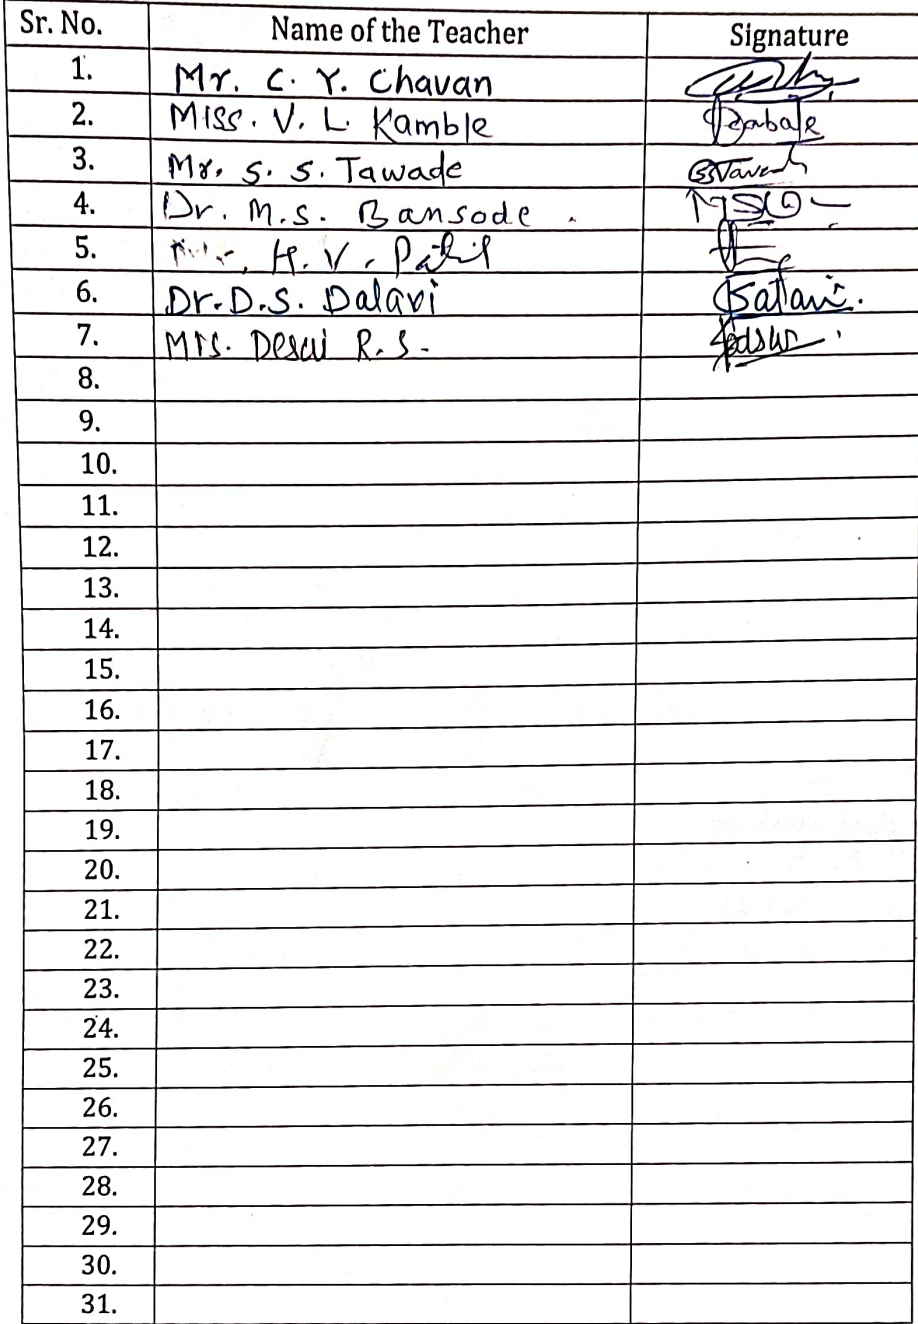 Sr. No. Name of the Teacher Signature
1. Mr. C. Y. Chavan
2. Miss. V. L. Kamble
3. Mr. S. S. Tawade
4. Dr. M.S. Bansode .
5. H. V. Patil
6. Dr. D.S. Dalavi
7. Mrs. Desai R. S.
8.
9.
10.
11.
12.
13.
14.
15.
16.
17.
18.
19.
20.
21.
22.
23.
24.
25.
26.
27.
28.
29.
30.
31.